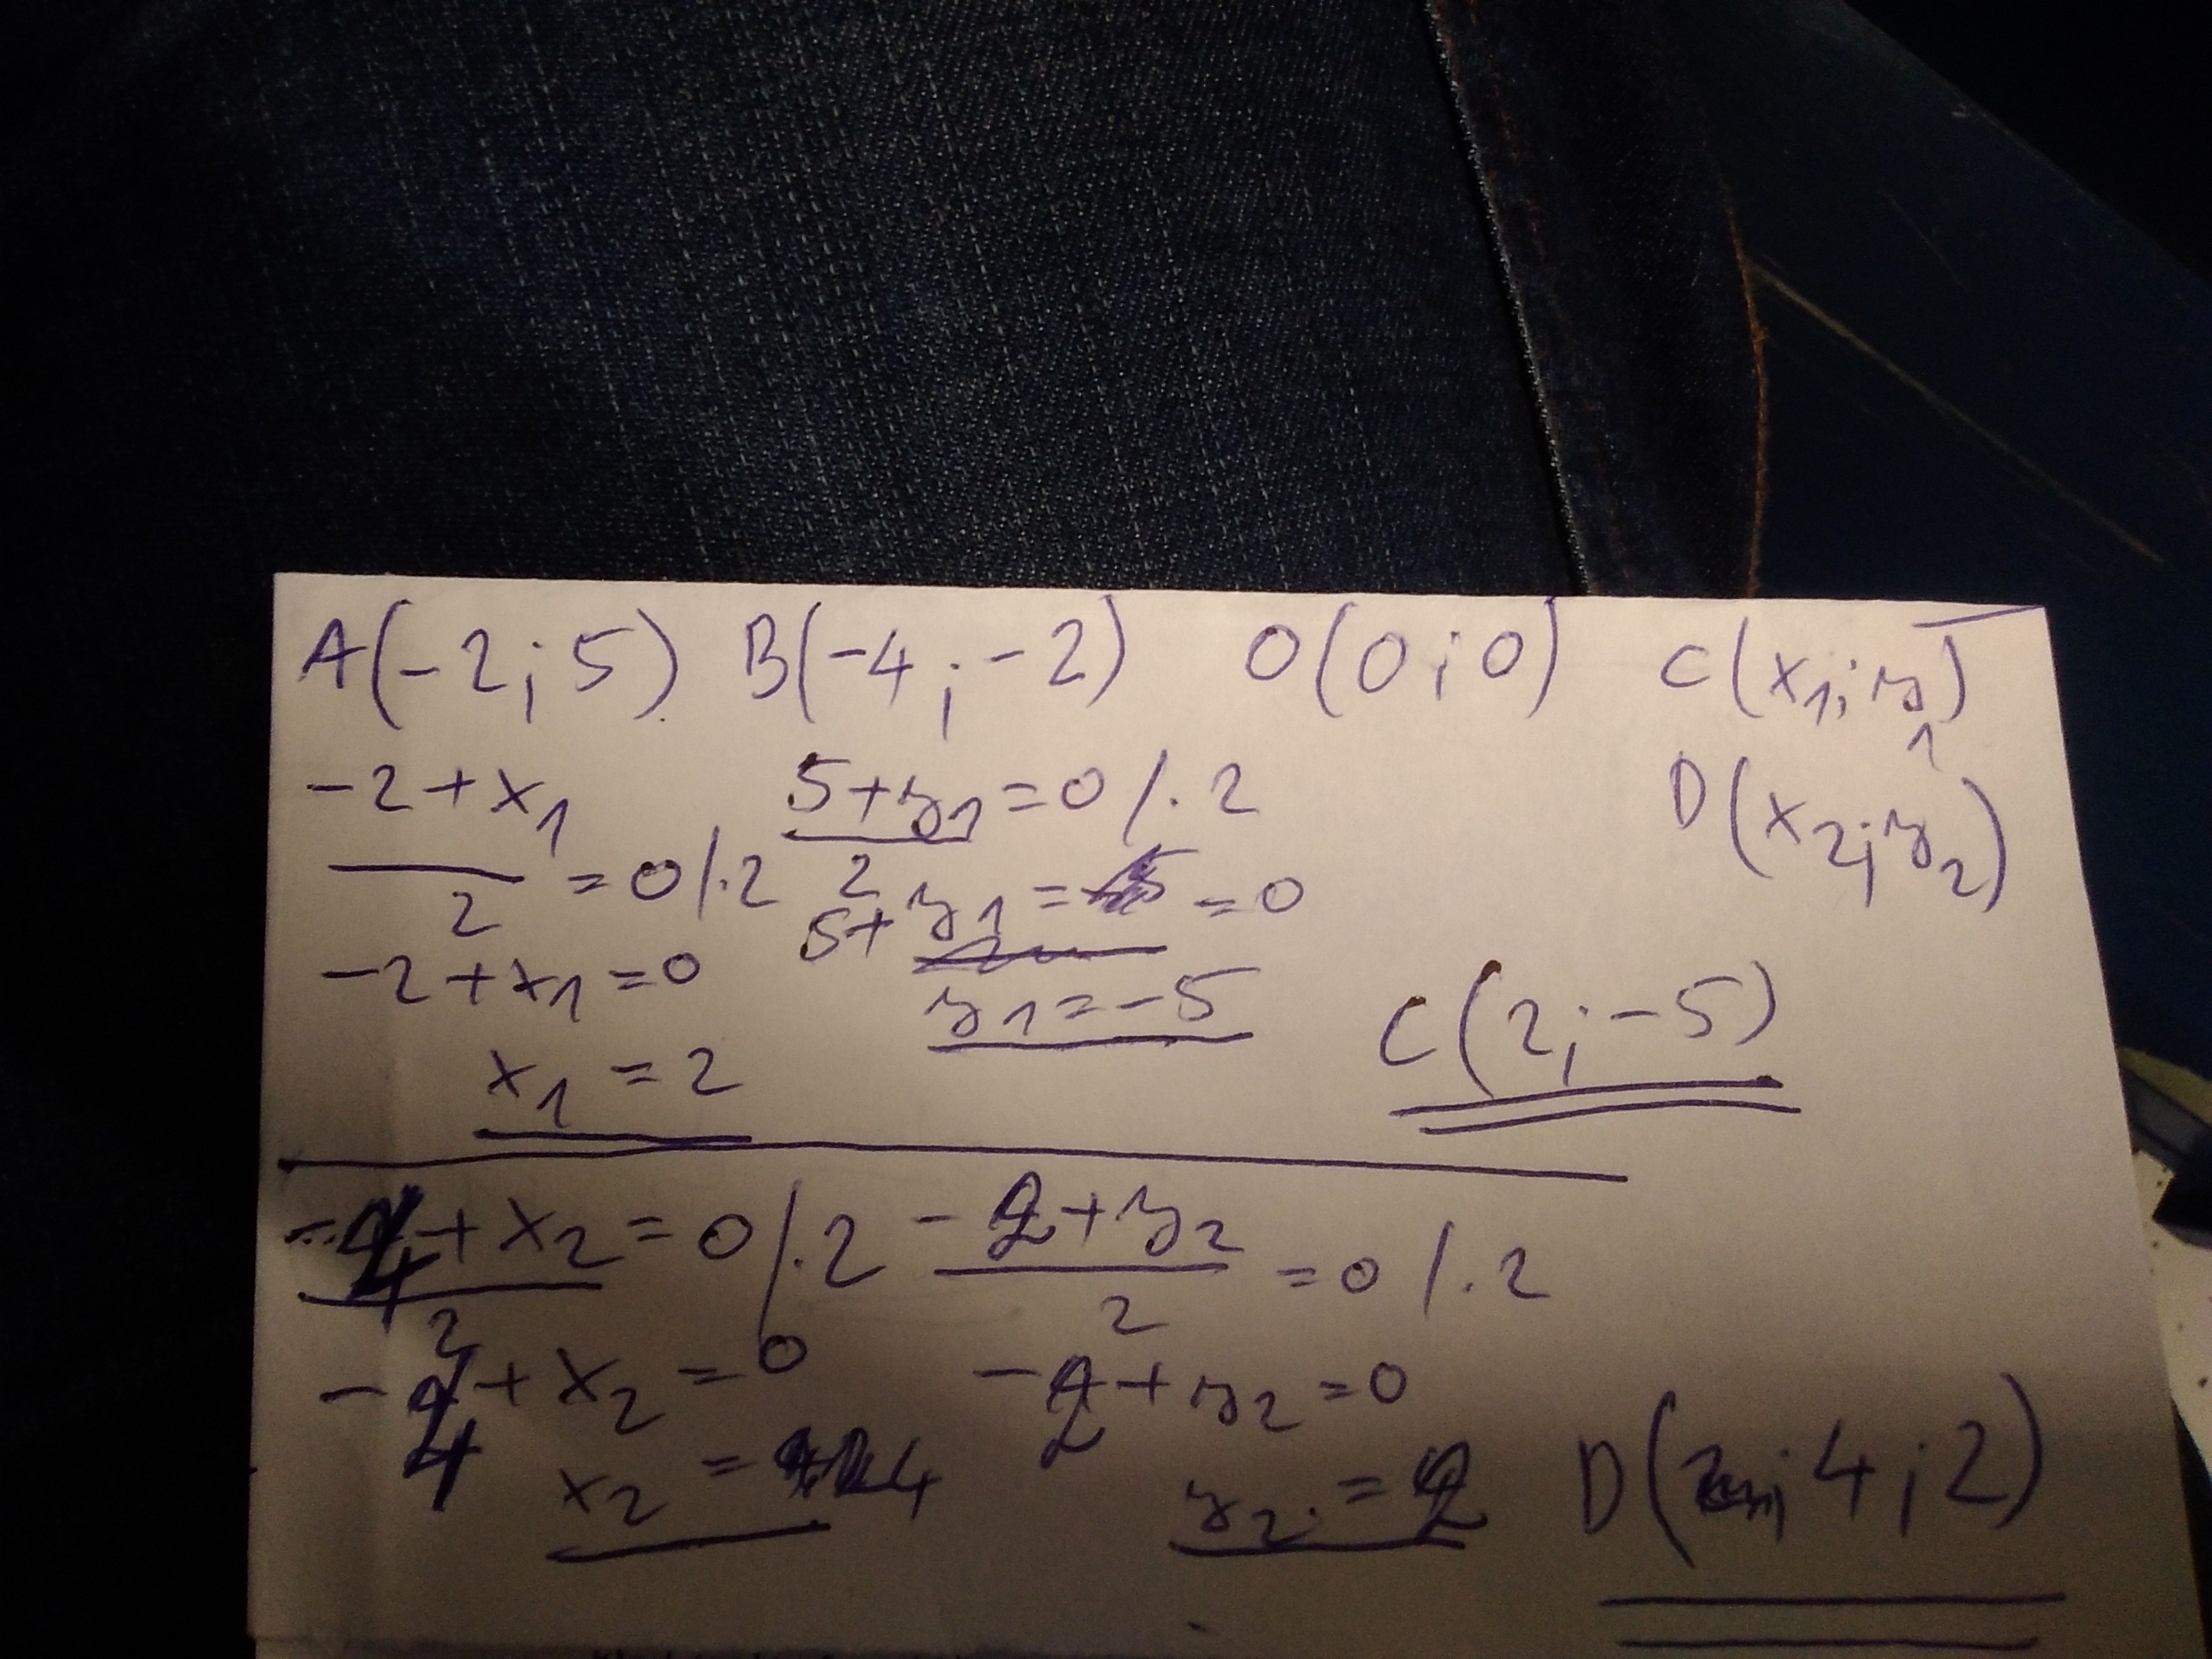 A(-2;5) B(-4;-2) O(0;0) C(x₁;y₁)
D(x₂;y₂)
(-2+x₁)/2 = 0 /·2 (5+y₁)/2 = 0 /·2
-2+x₁=0 5+y₁ = 0
x₁ = 2 y₁=-5 C(2;-5)
(-4+x₂)/2 = 0 /·2 (-2+y₂)/2 = 0 /·2
-4+x₂=0 -2+y₂=0
x₂ = 4 y₂ = 2 D(4;2)